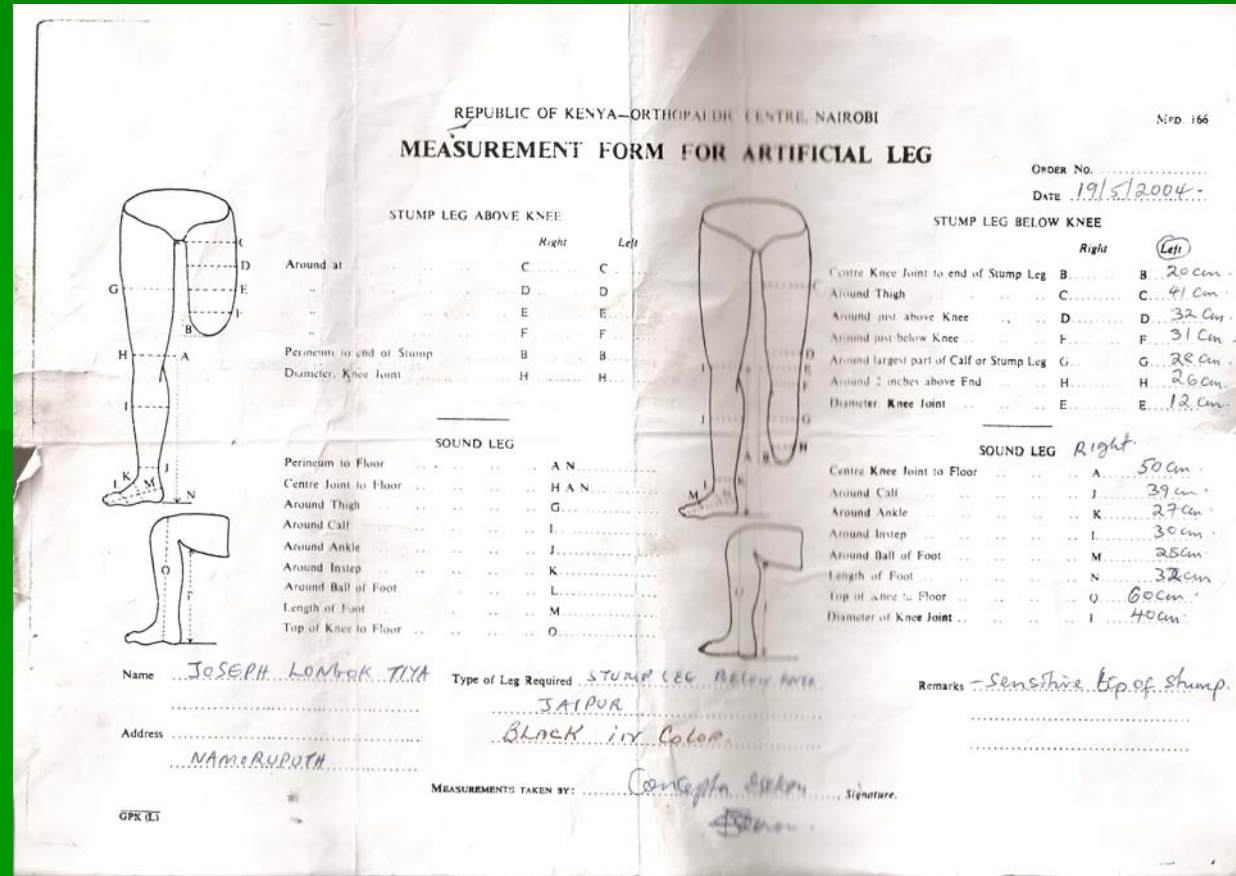 REPUBLIC OF KENYA—ORTHOPAEDIC CENTRE, NAIROBI
MED. 166
MEASUREMENT FORM FOR ARTIFICIAL LEG
ORDER No.
DATE 19/5/2004.
STUMP LEG ABOVE KNEE
Right Left
Around at C C
" D D
" E E
" F F
Perineum to end of Stump B B
Diameter, Knee Joint H H
SOUND LEG
Perineum to Floor A N
Centre Joint to Floor H A N
Around Thigh G
Around Calf I
Around Ankle J
Around Instep K
Around Ball of Foot L
Length of Foot M
Top of Knee to Floor O
STUMP LEG BELOW KNEE
Right Left
Centre Knee Joint to end of Stump Leg B B 20 cm.
Around Thigh C C 41 cm.
Around just above Knee D D 32 cm.
Around just below Knee F F 31 cm.
Around largest part of Calf or Stump Leg G G 28 cm.
Around 2 inches above End H H 26 cm.
Diameter, Knee Joint E E 12 cm.
SOUND LEG Right.
Centre Knee Joint to Floor A 50 cm.
Around Calf J 39 cm.
Around Ankle K 27 cm.
Around Instep L 30 cm.
Around Ball of Foot M cm.
Length of Foot N cm
Top of Knee to Floor O 60 cm.
Diameter of Knee Joint I 40 cm.
C
D
G E
F
B
H A
I
K J
L M N
O
C
D
I E
F
J G
H
A B
L K
M N
O
Name JOSEPH LONGOK TIYA
Address
NAMORUPUTH
Type of Leg Required STUMP LEG BELOW KNEE
JAIPUR
BLACK in Color.
Remarks - Sensitive tip of stump.
MEASUREMENTS TAKEN BY: Concepta Signature.
GPK (L)